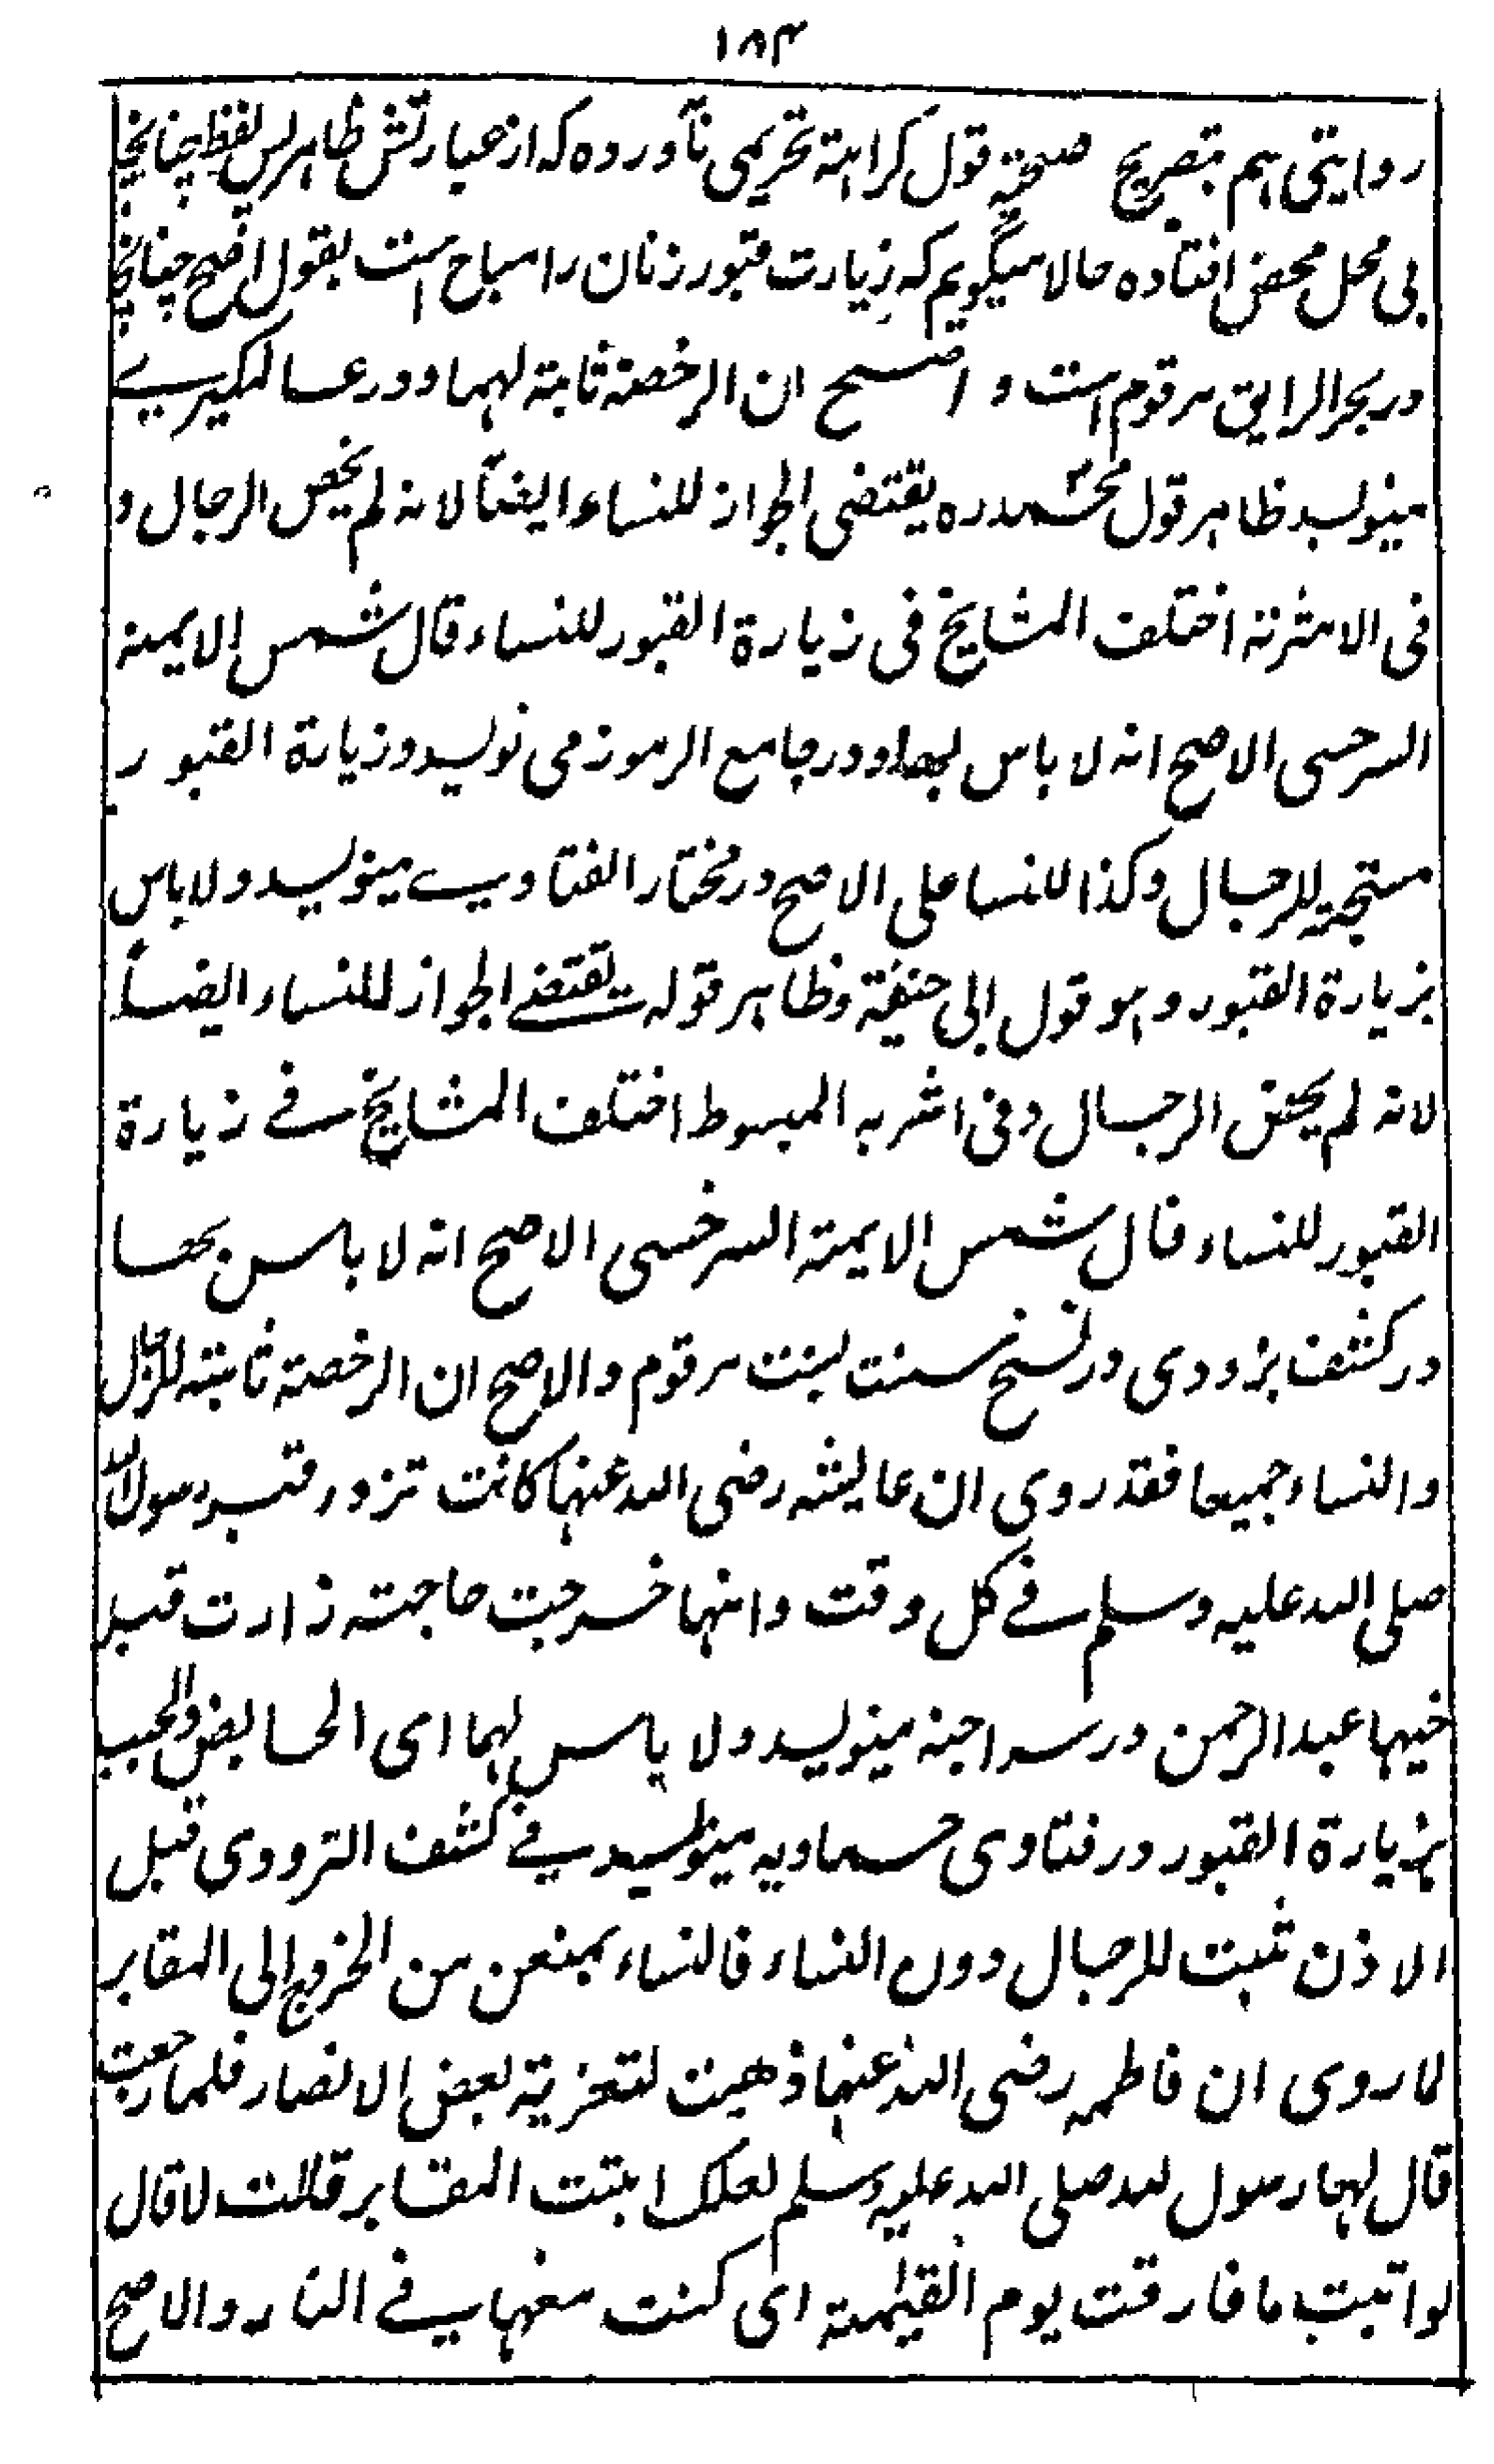 ۱۸۴
روایتی ہم بتصریح صحۃ قول کراہتہ تحریمی نآوردہ کہ از عبارتش ظاہر پس لفظ چنانچہ
بی محل محض افتادہ حالا میگویم کہ زیارت قبور زنان را مباح است بقول اصح چنانچہ
در بحر الرایق مرقوم است و اصح ان الرخصۃ ثابتۃ لہما و در عالمگیری
مینویسد ظاہر قول محمد رہ یقتضی الجواز للنساء ایضاً لانہ لم یخص الرجال و
فی الاشربۃ اختلف المشایخ فی زیارۃ القبور للنساء قال شمس الایمۃ
السرخسی الاصح انہ لا باس بھا و در جامع الرموز می نویسد و زیارۃ القبور
مستحبۃ للرجال وکذا للنسا علی الاصح در مختار الفتاوی مینویسد و لا باس
بزیارۃ القبور و ہو قول ابی حنیفۃ و ظاہر قولہ یقتضی الجواز للنساء ایضاً
لانہ لم یخص الرجال و فی اشربہ المبسوط اختلف المشایخ فی زیارۃ
القبور للنساء قال شمس الایمۃ السرخسی الاصح انہ لا باس بھا
در کشف بزودی در نسخ سنت بسنت مرقوم و الاصح ان الرخصۃ ثابتۃ للرجال
والنساء جمیعا فقد روی ان عایشہ رضی اللہ عنہا کانت تزور قبر رسول اللہ
صلی اللہ علیہ وسلم فی کل وقت وانہا خرجت حاجتہ زارت قبر
خیہا عبد الرحمن در سراجنہ مینویسد ولا باس لہما ای الحایض والجنب
بزیارۃ القبور در فتاوی حمادیہ مینویسد فی کشف البزودی قیل
الاذن ثبت للرجال دون النساء فالنساء یمنعن من الخروج الی المقابر
لما روی ان فاطمہ رضی اللہ عنہا ذھبت لتعزیۃ بعض الانصار فلما رجعت
قال لہا رسول اللہ صلی اللہ علیہ وسلم لعلک اتیت المقابر قالت لا قال
لو اتیت ما فارقت یوم القیٰمۃ ای کنت معہا فی النار و الاصح